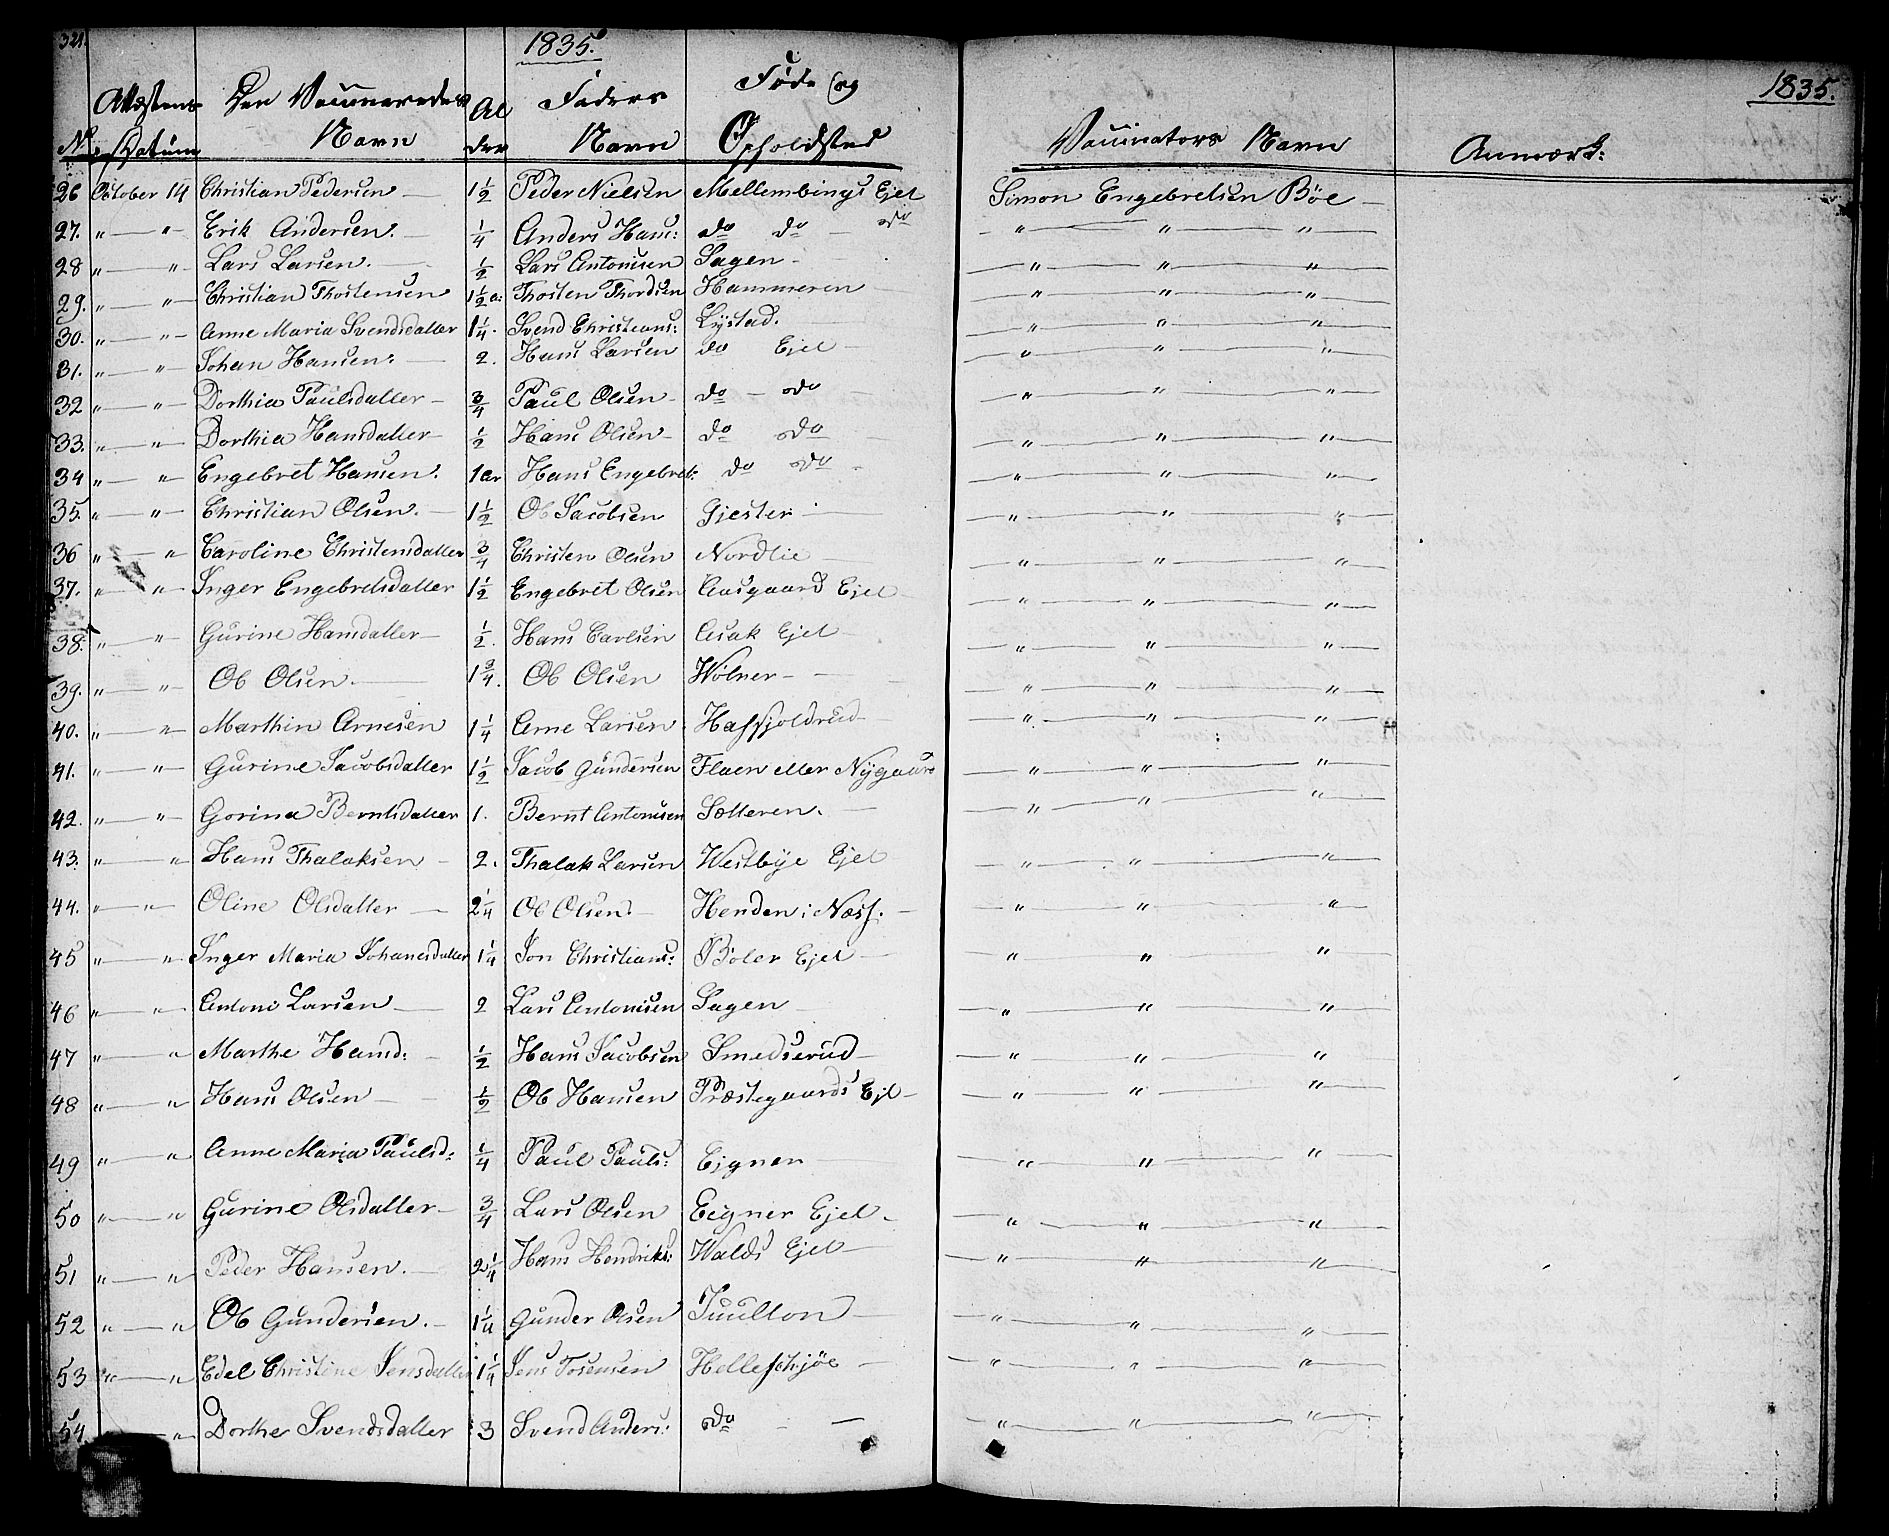 321.
1835.
1835.
Attestens Den Vaccineredes Al Faders Føde og
No Datum Navn der Navn Opholdsted Vaccinators Navn Anmærk:
26 October 14 Christian Pedersen — 1 1/2 Peder Nielsen Mellembings Ejet Simon Engebretsen Böe —
27. " — " — Erik Andersen. — 1/4 Anders Hans: do do — do — " — " — " —
28 " — " Lars Larsen. — 1/2 Lars Antonisen Sagen — — " — " — " —
29. " — " — Christian Thostensen 1 1/2 a: Thosten Thordsen Hammeren — — " — " — " —
30. " — " — Anne Maria Svendsdatter 1 1/4. Svend Christians: Lystad. — — " — " — " —
31. " — " — Johan Hansen: — 2. Hans Larsen do Ejet — — " — " — " —
32 " — " — Dorthia Paulsdatter — 3/4 Paul Olsen — do — do — — " — " — " —
33. " — " — Dorthia Hansdatter — 1/2 Hans Olsen — do do — — " — " — " —
34 " — " — Engebret Hansen. 1 ar Hans Engebret: do do — — " — " — " —
35. " — " — Christian Olsen. — 1 1/2 Ole Jacobsen Gjester — — " — " — " —
36 " — " Caroline Christensdatter 3/4 Christen Olsen Nordlie — — " — " — " —
37. " — " — Inger Engebretsdatter 1 1/2 Engebret Olsen Aasgaard Ejet — — " — " — " —
38. " — " Gurine Hansdatter — 1/2. Hans Carlsen Asak Ejet — — " — " — " —
39. " — " — Ole Olsen. — 1 3/4. Ole Olsen Wölner — — — " — " — " —
40. " — " — Marthin Arnesen 1 1/4 Arne Larsen Hafsjoldrud — — " — " — " —
41. " — " — Gurine Jacobsdatter 1 1/2 Jacob Gundersen Flaen eller Nygaard — " — " — " —
42. " — " — Gorina Berntsdatter 1. Bernt Antonisen Sætteren. — — " — " — " —
43. " — " Hans Thalaksen — 2. Thalak Larsen Westbye Ejet — " — " — " —
44. " — " — Oline Olsdatter — 2 1/4 Ole Olsen — Henden i Næss. — — " — " — " —
45 " — " Inger Maria Johanesdatter 1 1/4 Jon Christians: Böler Ejet — — " — " — "
46 " — " — Antoni Larsen — 2 Lars Antonisen Sagen — — " — " — " —
47 " — " Marthe Hansd: — 1/2 Hans Jacobsen Smedserud — — " — " — "
48 " — " Hans Olsen — 1/2 Ole Hansen Præstegaards Ejet — — " — " — "
49 " — " Anne Maria Paulsd: 1/4 Paul Pauls: Eigner — — " — " — " —
50 " — " Gurine Olsdatter — 3/4 Lars Olsen Eigner Ejet — — " — " — " —
51 " — " Peder Hansen. — 2 1/4 Hans Hendriks: Walds Ejet — — " — " — " —
52 " — " Ole Gundersen. — 1 1/4 Gunder Olsen Juulton — — " — " — " —
53 " — " Edel Christine Jensdatter 1 1/4 Jens Tosensen Helleschjöe — — " — " — " —
54. " — " Dorthe Svendsdatter 3 Svend Anders: do — — " — " — " —